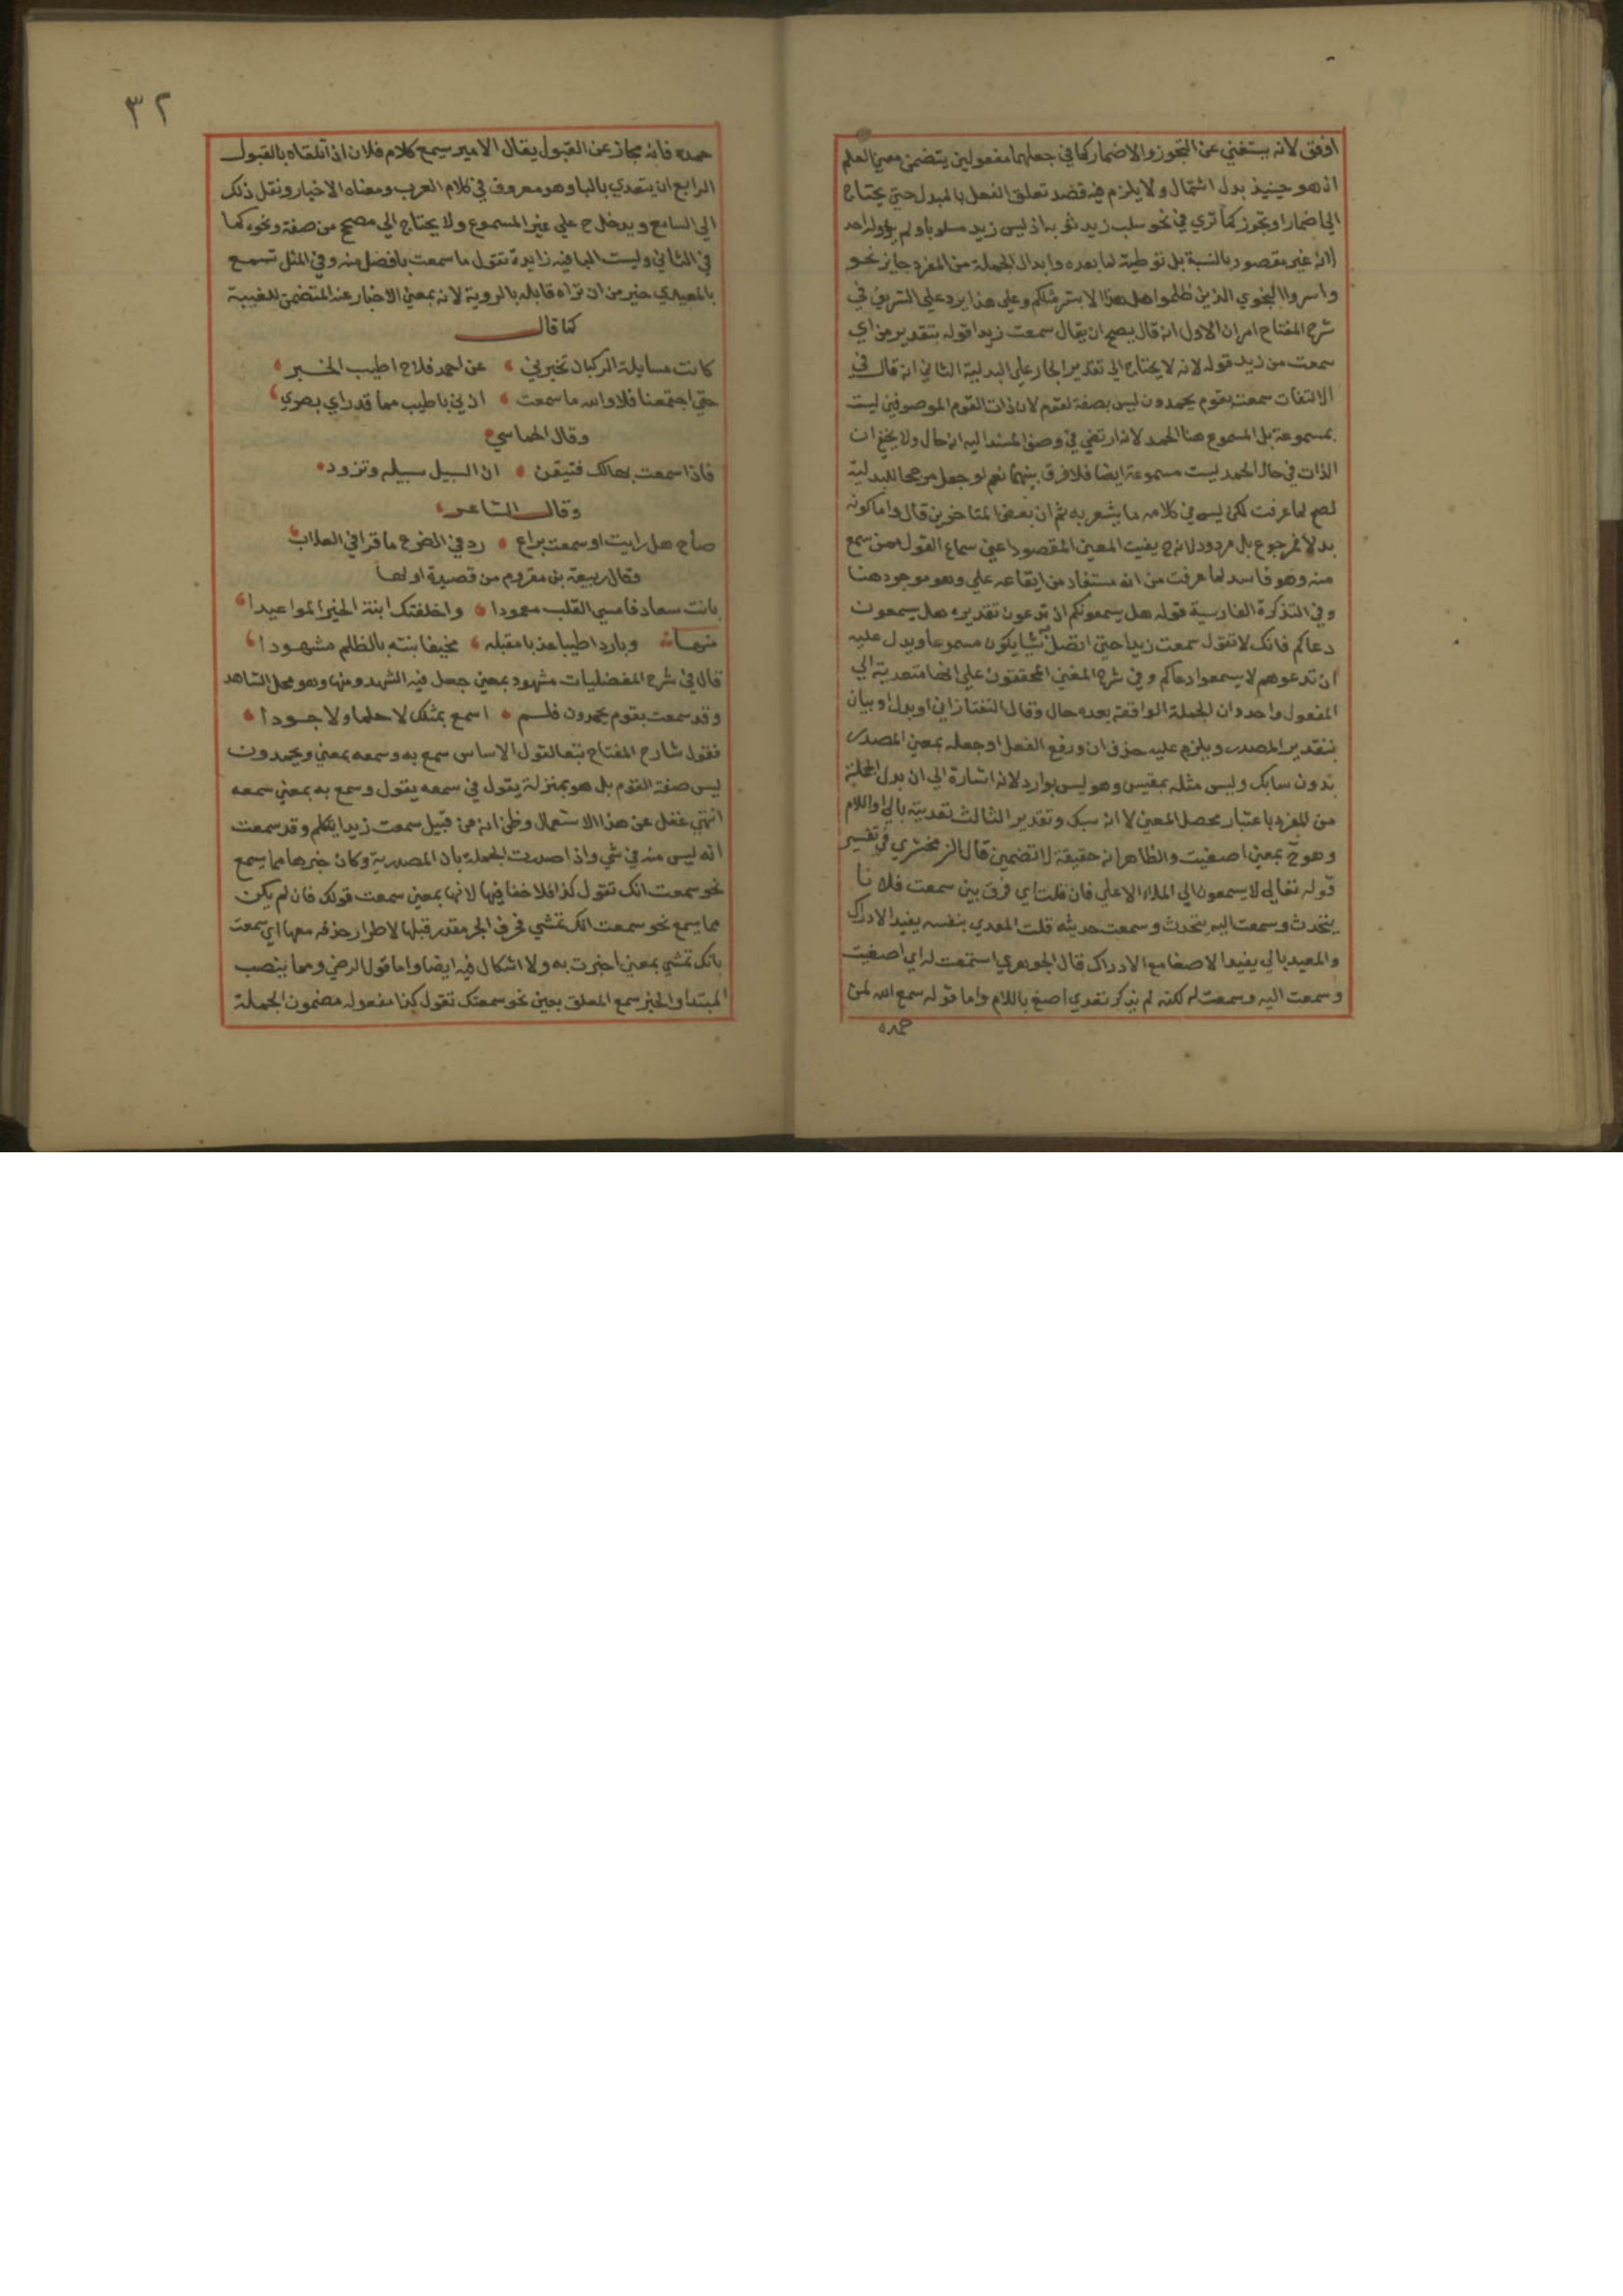 اوفق لانه يستغني عن التجوز والاضمار كما في جعلهما مفعولين يتضمن معني العلم
اذ هو حينيذ بدل اشتمال ولا يلزم فيه قصد تعلق الفعل بالمبدل حتي يحتاج
الي اضمار او تجوز كما تري في نحو سلب زيد ثوبه اذ ليس زيد مسلوبا ولم يؤولوا احد
انه غير مقصود بالنسبة بل توطية لما بعده وابدال الجملة من المفرد جايز نحو
واسروا النجوي الذين ظلموا هل هذا الا بشر مثلكم وعلي هذا يرد علي الشريف في
شرح المفتاح امران الاول انه قال يصح ان يقال سمعت زيدا قوله بتقدير من اي
سمعت من زيد قوله لانه لا يحتاج الي تقدير الجار علي البدلية الثاني انه قال في
الالتفات سمعت بقوم يحمدون ليس بصفة لقوم لان ذات القوم الموصوفين ليست
بمسموعة بل المسموع هنا الحمد لانه ارتضي في وصف المسند اليه انه حال ولا يخفي ان
الذات في حال الحمد ليست مسموعة ايضا فلا فرق بينهما نعم لو جعل مرجحا للبدلية
لصح لما عرفت لكن ليس في كلامه ما يشعر به ثم ان بعض المتاخرين قال واما كونه
بدلا فمرجوع بل مردود لانه ح يفيت المعني المقصود اعني سماع القول ممن سمع
منه وهو فاسد لما عرفت من انه مستفاد من ايقاعه علي وهو موجود هنا
وفي التذكرة الفارسية قوله هل يسمعونكم اذ تدعون تقديره هل يسمعون
دعاكم فانك لا تقول سمعت زيدا حتي اتصل بشي يكون مسموعا ويدل عليه
ان تدعوهم لا يسمعوا دعاكم وفي شرح المغني المحققون علي انها متعدية الي
المفعول واحد وان الجملة الواقعة بعده حال وقال التفتازاني او بدل او بيان
بتقدير المصدر ويلزم عليه حذف ان ورفع الفعل او جعله بمعني المصدر
بدون سابك وليس مثله بمقيس وهو ليس بوارد لانه اشارة الي ان بدل الجملة
من المفرد باعتبار محصل المعني لا انه سبك وتقدير الثالث تعديته بالي او اللام
وهو ح بمعني اصغيت والظاهر انه حقيقة لا تضمين قال الزمخشري في تفسير
قوله تعالي لا يسمعون الي الملاء الاعلي فان قلت اي فرق بين سمعت فلانا
يتحدث وسمعت اليه يتحدث وسمعت حديثه قلت المعدي بنفسه يفيد الادراك
والمعدي بالي يفيد الاصغا مع الادراك قال الجوهري استمعت له اي اصغيت
وسمعت اليه وسمعت له لكنه لم يذكر تعدي اصغ باللام واما قوله سمع الله لمن
حمده
٣٢
حمده فانه مجاز عن القبول يقال الامير سمع كلام فلان اذا تلقاه بالقبول
الرابع ان يتعدي بالبا وهو معروف في كلام العرب ومعناه الاخبار ونقل ذلك
الي السامع ويدخل ح علي غير المسموع ولا يحتاج الي مصحح من صفة ونحوه كما
في الثاني وليست البا فيه زايدة تقول ما سمعت بافضل منه وفي المثل تسمع
بالمعيدي خير من ان تراه قابله بالروية لانه بمعني الاخبار عنه المتضمن للغيبة
كما قال
كانت مسايلة الركبان تخبرني ، عن احمد فلاح اطيب الخبر ،
حتي اجتمعنا فلا والله ما سمعت ، اذني باطيب مما قد راي بصري ،
وقال الحماسي
فاذا سمعت بهالك فتيقن ، ان السبيل سبيله وتزود ،
وقال الشاعر ،
صاح هل رايت او سمعت براع ، رد في الضرع ما قرا في العلاب ،
وقال ربيعة بن مقروم من قصيدة اولها
بانت سعاد فامسي القلب معمودا ، واخلفتك ابنة الحر المواعيدا ،
منها وباردا طيبا عذبا مقبله ، مخيفا بنته بالظلم مشهودا ،
قال في شرح المفضليات مشهود بمعني جعل فيه الشهد ومنها وهو محل الشاهد
وقد سمعت بقوم يحمدون فلم ، اسمع بمثلك لا حلما ولا جودا ،
فقول شارح المفتاح تبعا لقول الاساس سمع به وسمعه بمعني ويحمدون
ليس صفة القوم بل هو بمنزلة يقول في سمعه يقول وسمع به بمعني سمعه
انتهي غفل عن هذا الاستعمال وظن انه من قبيل سمعت زيدا يتكلم وقد سمعت
انه ليس منه في شي واذا صدرت الجملة بان المصدرية وكان خبرها مما يسمع
نحو سمعت انك تقول كذا فلا خفا فيها لانها بمعني سمعت قولك فان لم يكن
مما يسمع نحو سمعت انك تمشي فحرف الجر مقدر قبلها لاطراد حذفه معها اي سمعت
بانك تمشي بمعني اخبرت به ولا اشكال فيه ايضا واما قول الرضي ومما ينصب
المبتدا والخبر سمع المعلق بعين نحو سمعتك تقول كذا مفعوله مضمون الجملة